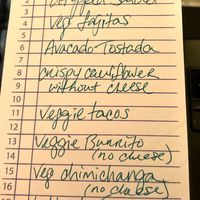 4 Veg fajitas
5
6 Avocado Tostada
7
8 crispy cauliflower
9 without cheese
10
11 Veggie tacos
12
13 Veggie Burrito
14 (no cheese)
15 Veg chimichanga
16 (no cheese)